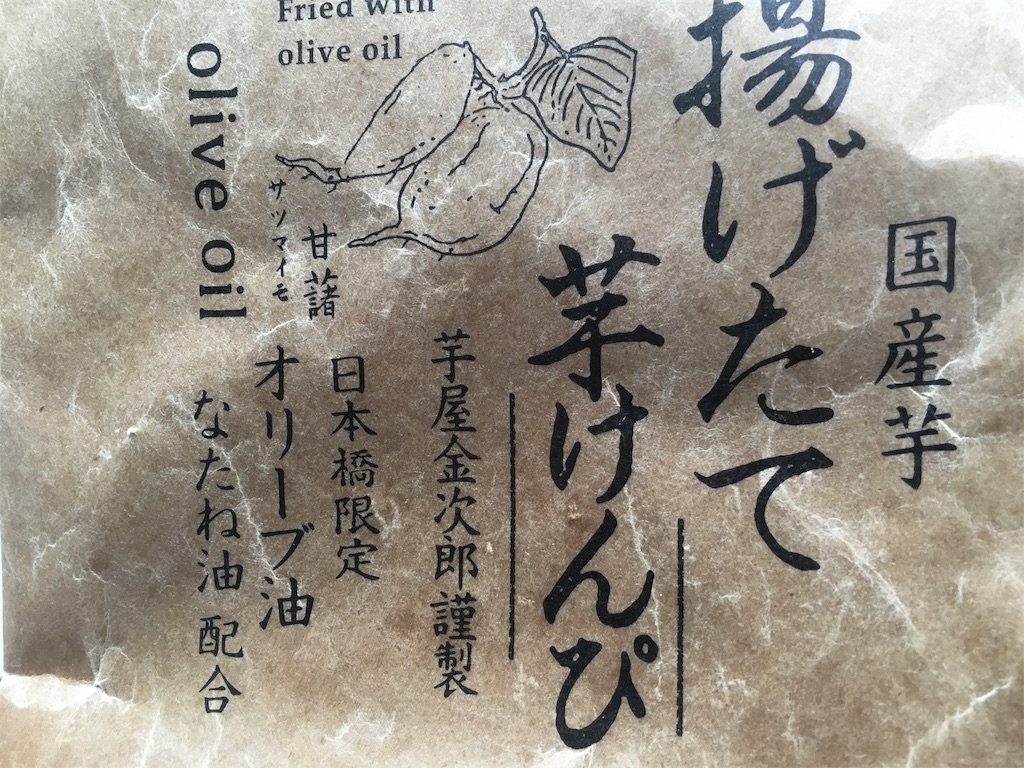 国産芋
揚げたて
芋けんぴ
芋屋金次郎 謹製
Fried with
olive oil
甘藷
サツマイモ
日本橋限定
オリーブ油
なたね油 配合
olive oil